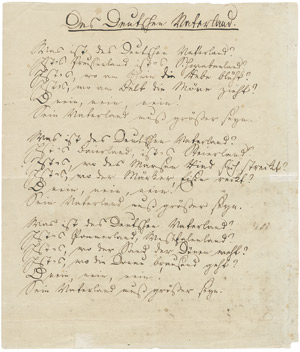 Des Deutschen Vaterland.
Was ist des Deutschen Vaterland?
Ists Preußenland ists Schwabenland?
Ists, wo am Rhein die Rebe blüht?
Ists, wo am Belt die Möve zieht?
O nein, nein, nein!
Sein Vaterland muß größer seyn.
Was ist des Deutschen Vaterland?
Ists Baierland, ists Steierland?
Ists, wo des Marsen Rind sich streckt?
Ists, wo der Märker Eisen reckt?
O nein, nein, nein!
Sein Vaterland muß größer seyn.
Was ist des Deutschen Vaterland?
Ists Pommerland, Westfalenland?
Ists, wo der Sand der Dünen weht?
Ists, wo die Donau brausend geht?
O nein, nein, nein!
Sein Vaterland muß größer seyn.